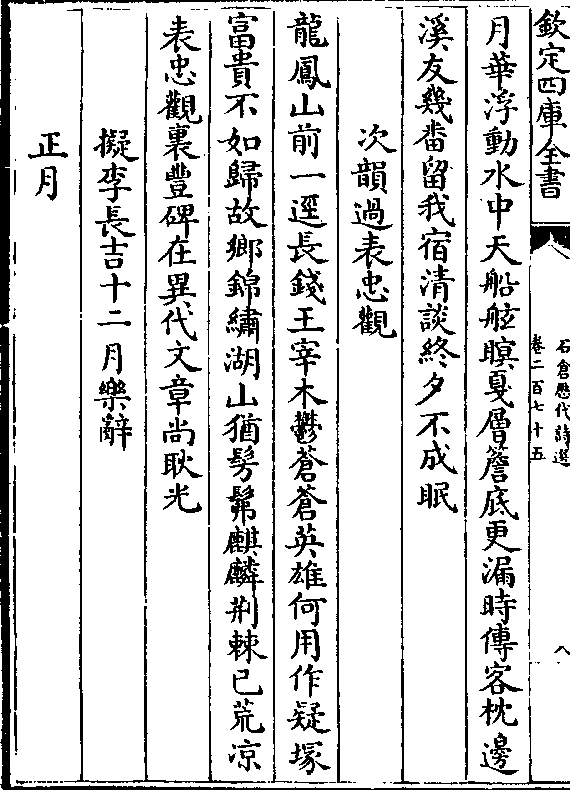 欽定四庫全書
石倉歷代詩選
卷二百七十五
八
月華浮動水中天船舷瞑戛層簷底更漏時傳客枕邊
溪友幾畨留我宿清談終夕不成眠
次韻過表忠觀
龍鳳山前一逕長錢王宰木鬱蒼蒼英雄何用作疑塚
富貴不如歸故鄉錦繡湖山猶髣髴麒麟荆棘已荒凉
表忠觀裏豐碑在異代文章尚耿光
擬李長吉十二月樂辭
正月